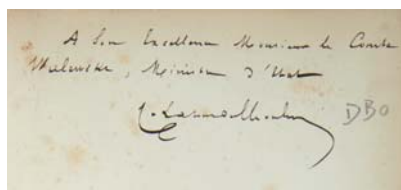 A Son Excellence Monsieur le Comte
Walewski, Ministre d'Etat
DBO